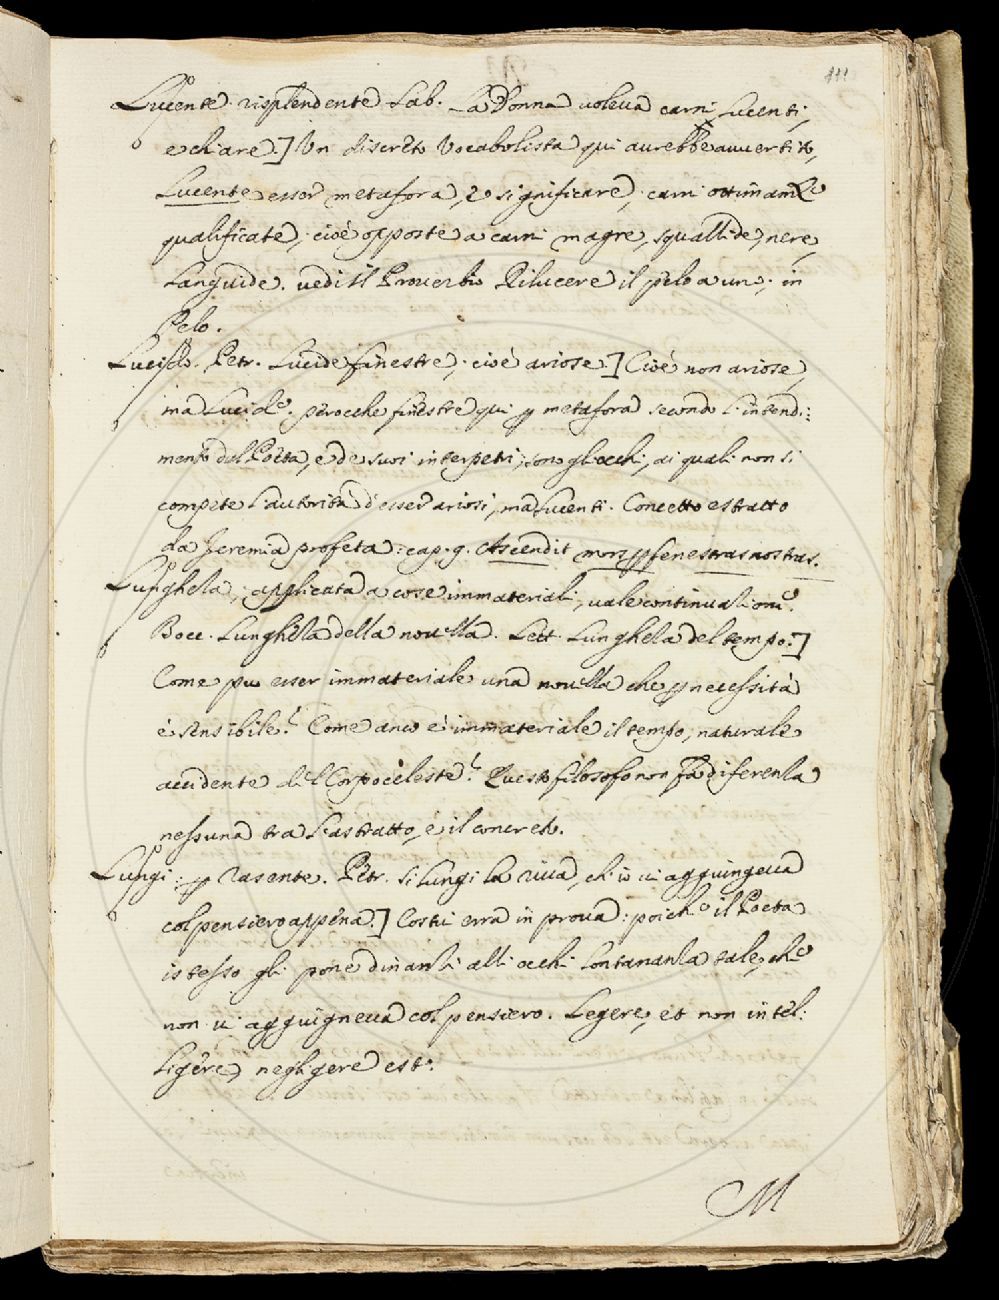 111
Lucente. risplendente Lab. La Donna voleva carni lucenti,
e chiare.] Un discreto Vocabolista qui avrebbe avvertito,
Lucente esser metafora, e significare, carni ottimamte
qualificate, cioè opposte a carni magre, squallide, nere,
Languide. vedi il Proverbio Rilucere il pelo a uno; in
Pelo.
Lucido. Petr. Lucide finestre, cioè ariose.] Cioè non ariose,
ma Lucide. perocche finestre qui p metafora secondo l'intendi:
mento del Poeta, e de suoi interpetri, son gli occhi, ai quali non si
compete l'autorità d'esser ariosi, ma lucenti. Concetto estratto
da Jeremia profeta: cap. 9. Ascendit mors p fenestras nostras.
Lunghela, applicata a cose immateriali, vale continuazione.
Bocc. Lunghela della novella. Lett. Lunghela del tempo.]
Come può esser immateriale una novella che p necessità
è sensibile? Come anco è immateriale il tempo, naturale
accidente del Corpo celeste? Questo filosofo non fa diferenla
nessuna tra l'astratto, e il concreto.
Lungi: p rasente. Petr. Si lungi la riva, ch'io vi aggiungeva
col pensiero appena.] Costui erra in prova: poiche il Poeta
istesso gli pone dinanli alli occhi lontananla tale, che
non vi aggiugneva col pensiero. Legere, et non intel:
Ligere, negligere est.
M